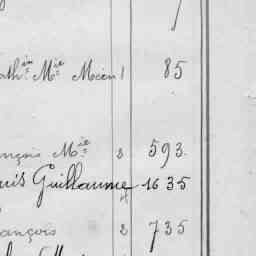 ath^in M^ie Mcen 1 85
nçois M^ie 3 593
uis Guillaume 4 1635
ançois 2 735